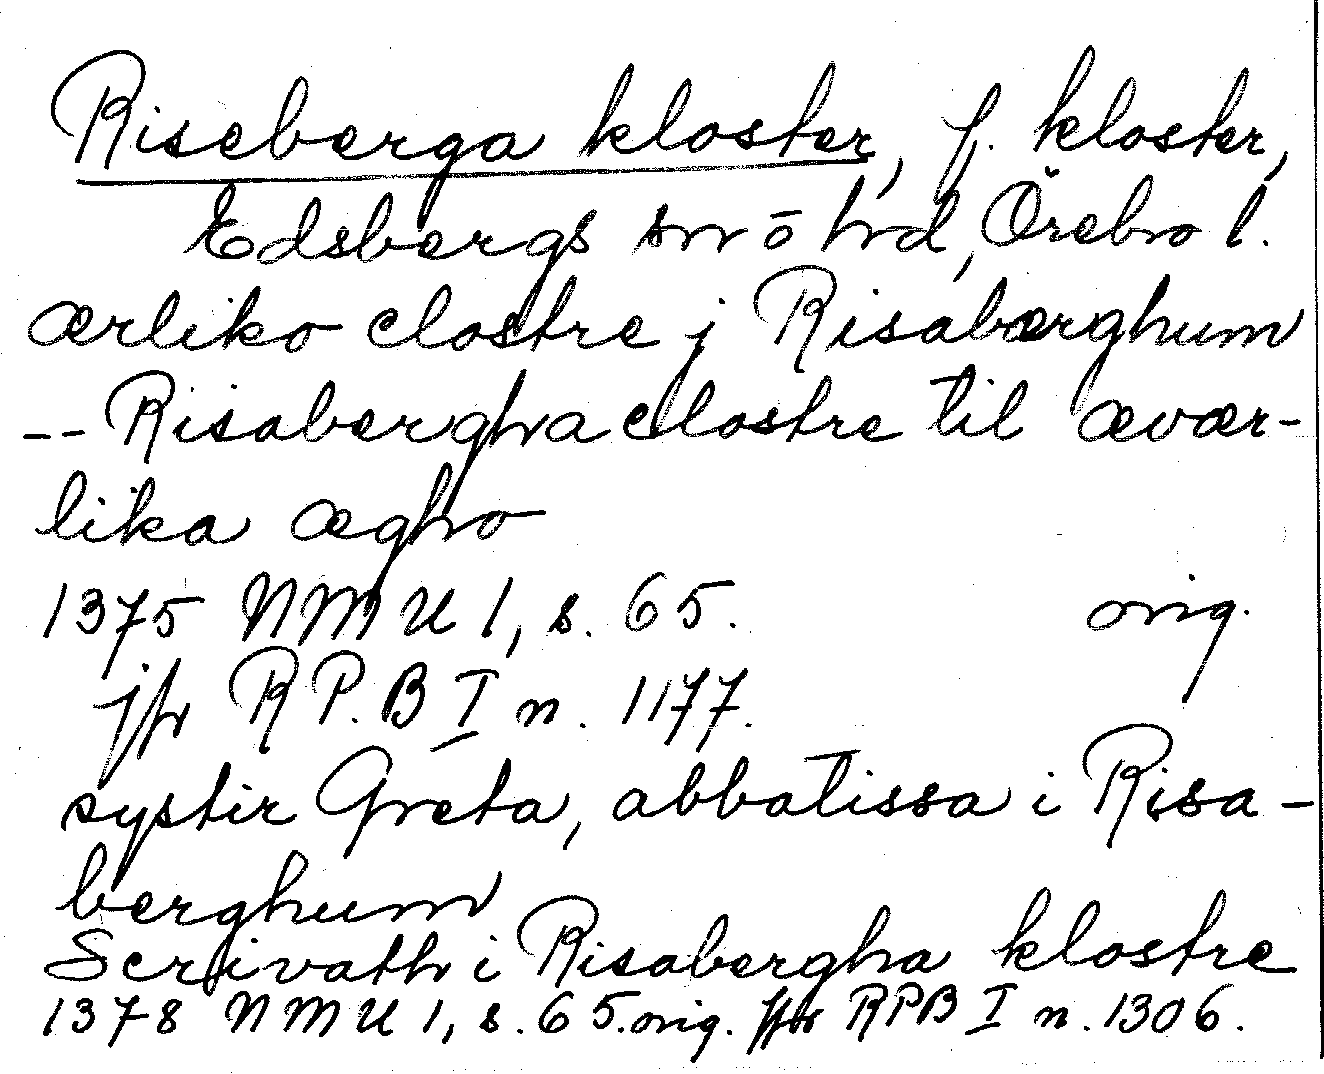 Riseberga kloster, f. kloster,
Edsbergs sn ō hd, Örebro l.
ærliko clostre j Risabærghum
-- Risabergha clostre til ævær-
lika ægho
1375 NMU 1, s. 65. orig.
jfr RP.B I n. 1177.
systir Greta, abbatissa i Risa-
berghum
Scrivath i Risabergha klostre
1378 NMU 1, s. 65. orig. jfr RPB I n. 1306.